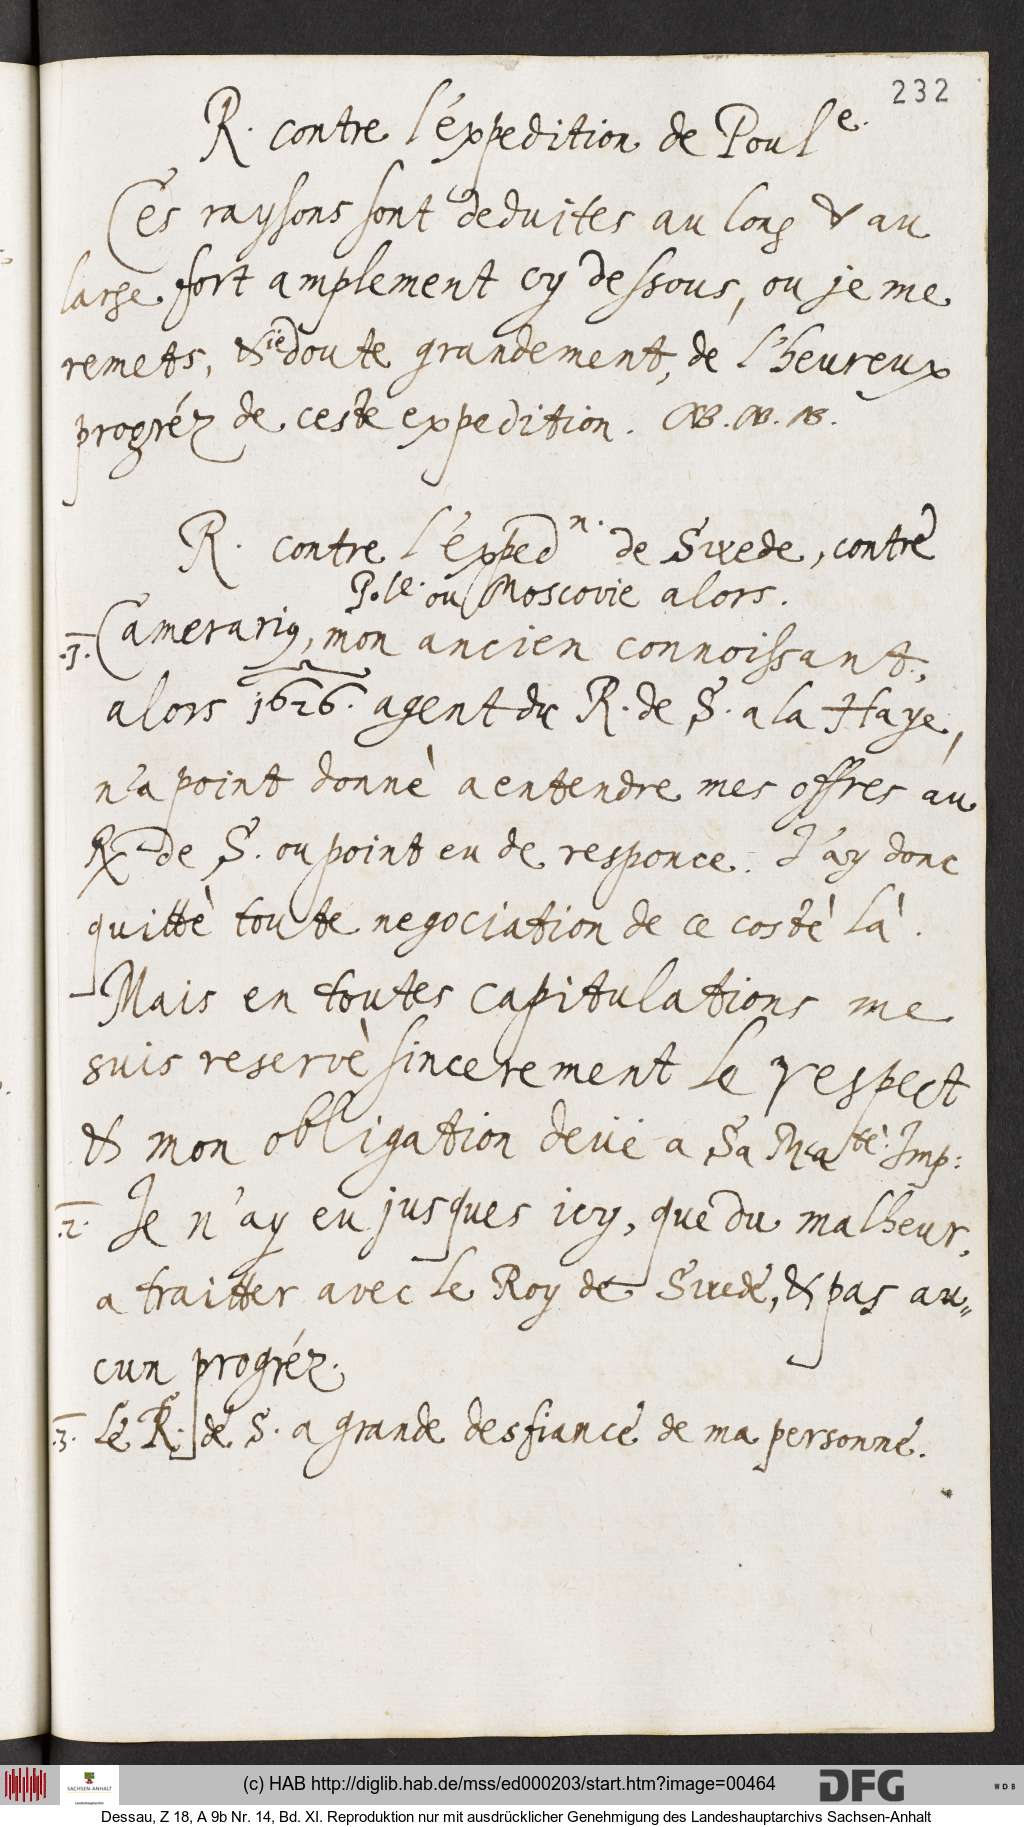 232
R. contre l'éxpedition de Poul^e.
Ces raysons sont deduites au long & au
large fort amplement cy dessous, ou je me
remets, & ie doute grandement, de l'heureux
progréz de ceste expedition. NB. NB. NB.
R. contre l'éxped^n. de Swede, contre
P.^le. ou Moscovie alors.
.1. Camerarius, mon ancien connoissant,
alors 1626. agent du R. de S. a la Haye,
n'a point donnè a entendre mes offres au
R. de S. ou point eu de responce. J'ay donc
quittè toute negociation de ce costè là.
Mais en toutes capitulations me
suis reservè sincerement le respect
& mon obligation deüe a Sa Ma^tè. Imp:
.2. Je n'ay eu jusques icy, que du malheur,
a traitter avec le Roy de Swede, & pas au=
cun progréz.
.3. Le R. de S. a grande desfiance de ma personne.
(c) HAB http://diglib.hab.de/mss/ed000203/start.htm?image=00464
SACHSEN-ANHALT
DFG
WDB
Dessau, Z 18, A 9b Nr. 14, Bd. XI. Reproduktion nur mit ausdrücklicher Genehmigung des Landeshauptarchivs Sachsen-Anhalt